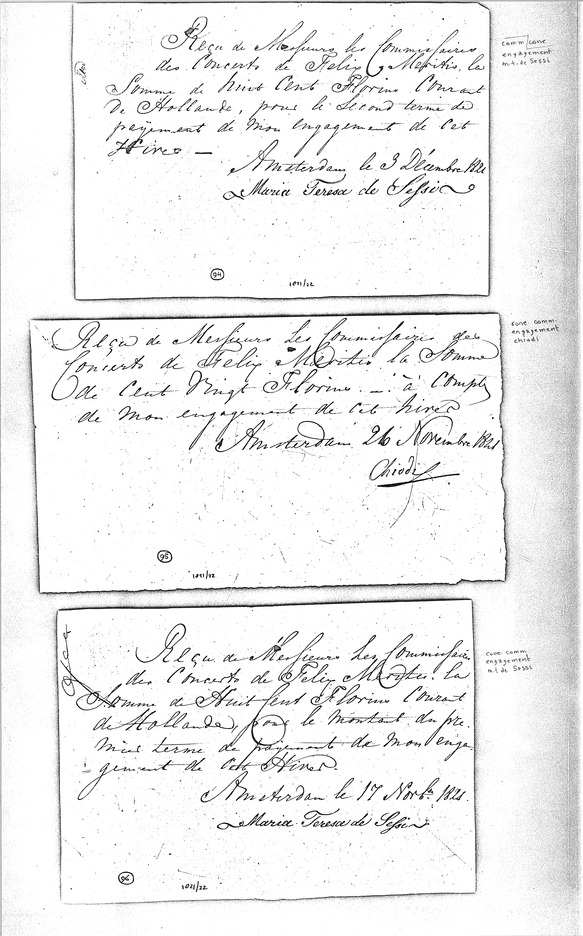 comm/conc
engagement
m.t. de Sessi
Reçu de Messieurs les Commissaires
des Concerts de Felix Meritis, la
Somme de huit Cent Florins Courant
de Hollande, pour le second terme de
payement de mon engagement de cet
Hiver —
Amsterdam le 3 Décembre 1821
Maria Teresa de Sessi
94
1821/22
conc. comm.
engagement
chiodi
Reçu de Messieurs Les Commissaires des
Concerts de Felix Meritis la Somme
de Cent Vingt Florins — à Compte
de mon engagement de cet hiver
Amsterdam 26 Novembre 1821
Chiodi
95
1821/22
conc. comm
engagement
m.t. de Sessi
Reçu de Messieurs Les Commissaires
des Concerts de Felix Meritis, la
Somme de Huit Cent Florins Courant
de Hollande, pour le montant du pre
mier terme de payement de mon enga
gement de cet Hiver.
Amsterdam le 17 Novbr. 1821.
Maria Teresa de Sessi
96
1821/22